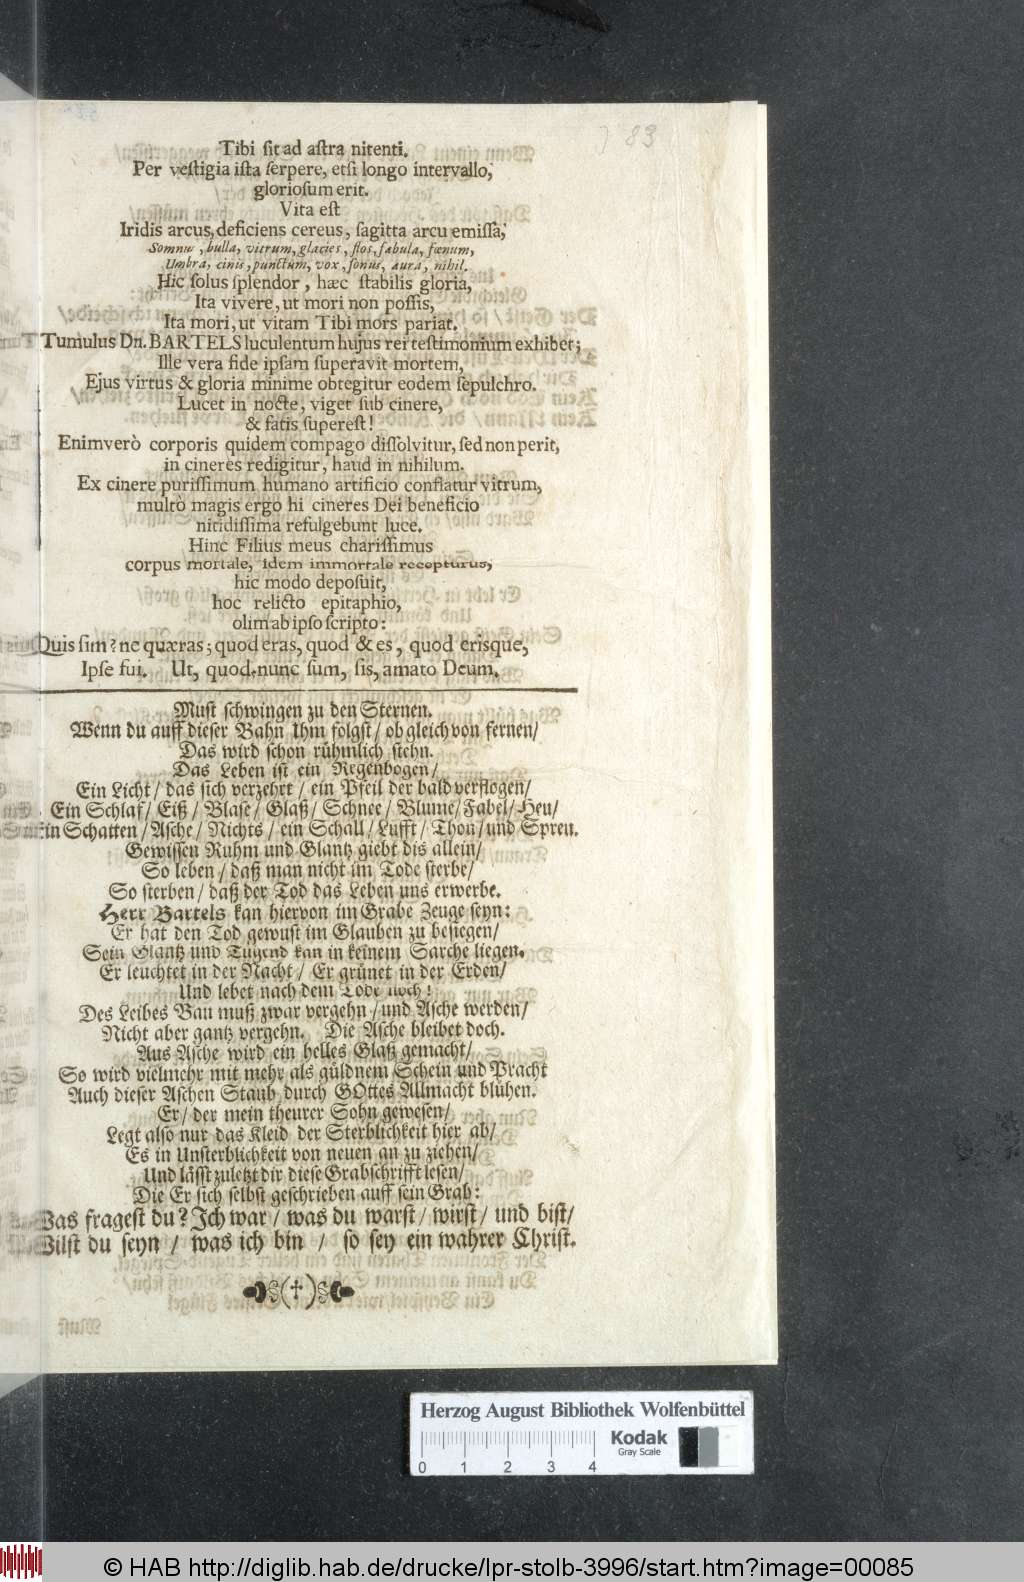 83
Tibi sit ad astra nitenti.
Per vestigia ista serpere, etsi longo intervallo,
gloriosum erit.
Vita est
Iridis arcus, deficiens cereus, sagitta arcu emissa,
Somnus, bulla, vitrum, glacies, flos, fabula, fœnum,
Umbra, cinis, punctum, vox, sonus, aura, nihil.
Hic solus splendor, hæc stabilis gloria,
Ita vivere, ut mori non possis,
Ita mori, ut vitam Tibi mors pariat.
Tumulus Dn. BARTELS luculentum hujus rei testimonium exhibet;
Ille vera fide ipsam superavit mortem,
Ejus virtus & gloria minime obtegitur eodem sepulchro.
Lucet in nocte, viget sub cinere,
& fatis superest!
Enimverò corporis quidem compago dissolvitur, sed non perit,
in cineres redigitur, haud in nihilum.
Ex cinere purissimum humano artificio conflatur vitrum,
multò magis ergo hi cineres Dei beneficio
nitidissima refulgebunt luce.
Hinc Filius meus charissimus
corpus mortale, idem immortale recepturus,
hic modo deposuit,
hoc relicto epitaphio,
olim ab ipso scripto:
Quis sim? ne quæras; quod eras, quod & es, quod erisque,
Ipse fui. Ut, quod nunc sum, sis, amato Deum.
Must schwingen zu den Sternen.
Wenn du auff dieser Bahn Ihm folgst / ob gleich von fernen /
Das wird schon rühmlich stehn.
Das Leben ist ein Regenbogen /
Ein Licht / das sich verzehrt / ein Pfeil der bald verflogen /
Ein Schlaf / Eiß / Blase / Glaß / Schnee / Blume / Fabel / Heu /
Ein Schatten / Asche / Nichts / ein Schall / Lufft / Thon / und Spreu.
Gewissen Ruhm und Glantz giebt dis allein /
So leben / daß man nicht im Tode sterbe /
So sterben / daß der Tod das Leben uns erwerbe.
Herr Bartels kan hiervon im Grabe Zeuge seyn:
Er hat den Tod gewust im Glauben zu besiegen /
Sein Glantz und Tugend kan in keinem Sarche liegen.
Er leuchtet in der Nacht / Er grünet in der Erden /
Und lebet nach dem Tode noch!
Des Leibes Bau muß zwar vergehn / und Asche werden /
Nicht aber gantz vergehn. Die Asche bleibet doch.
Aus Asche wird ein helles Glaß gemacht /
So wird vielmehr mit mehr als güldnem Schein und Pracht
Auch dieser Aschen Staub durch GOttes Allmacht blühen.
Er / der mein theurer Sohn gewesen /
Legt also nur das Kleid der Sterblichkeit hier ab /
Es in Unsterblichkeit von neuen an zu ziehen /
Und lässt zuletzt dir diese Grabschrifft lesen /
Die Er sich selbst geschrieben auff sein Grab:
Was fragest du? Ich war / was du warst / wirst / und bist /
Wilst du seyn / was ich bin / so sey ein wahrer Christ.
Herzog August Bibliothek Wolfenbüttel
Kodak
Gray Scale
0 1 2 3 4
© HAB http://diglib.hab.de/drucke/lpr-stolb-3996/start.htm?image=00085